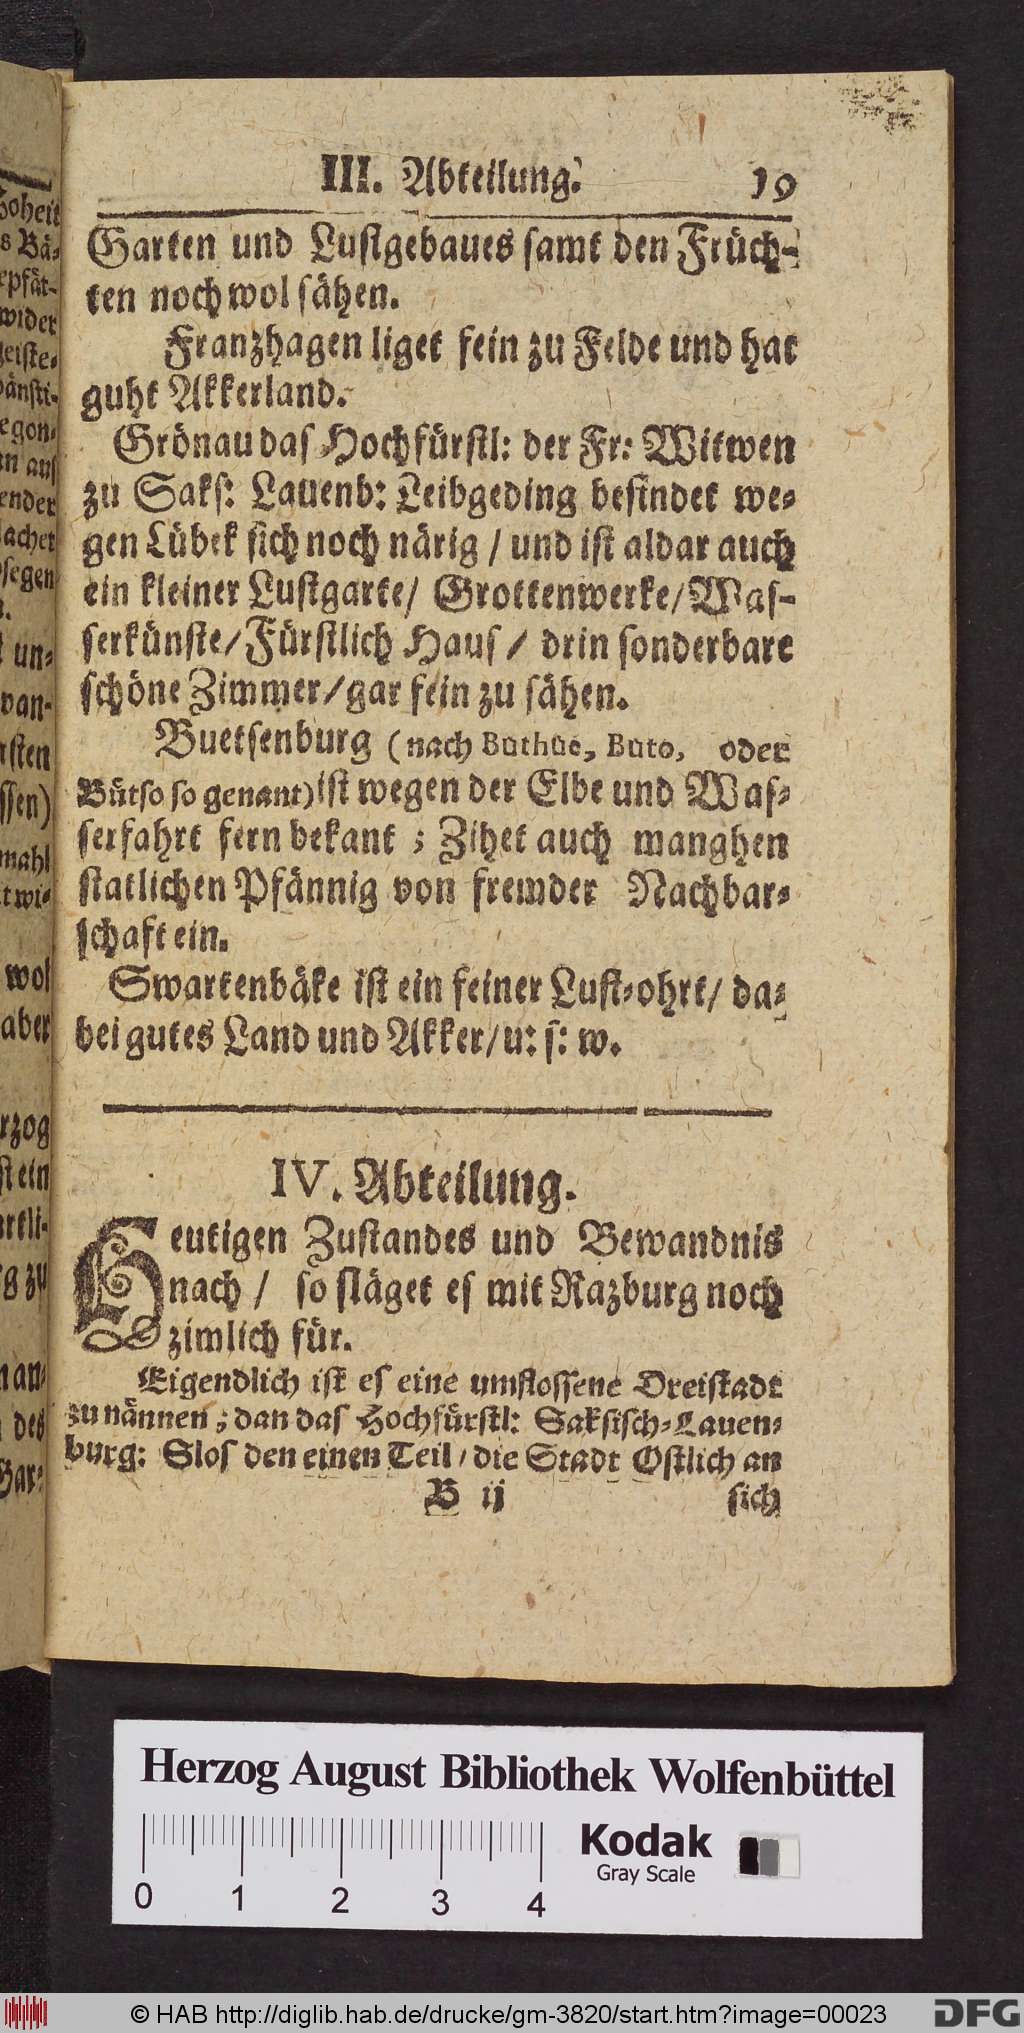 III. Abteilung. 19
Garten und Lustgebaues samt den Früch-
ten noch wol sähen.
Franzhagen liget fein zu Felde und hat
guht Akkerland.
Grönau das Hochfürstl: der Fr: Witwen
zu Saks: Lauenb: Leibgeding befindet we-
gen Lübek sich noch närig / und ist aldar auch
ein kleiner Lustgarte / Grottenwerke / Was-
serkünste / Fürstlich Haus / drin sonderbare
schöne Zimmer / gar fein zu sähen.
Buetsenburg (nach Buthue, Buto, oder
Bütso so genant) ist wegen der Elbe und Was-
serfahrt fern bekant ; Zihet auch manghen
statlichen Pfännig von fremder Nachbar-
schaft ein.
Swartenbäke ist ein feiner Lust-ohrt / da-
bei gutes Land und Akker / u: s: w.
IV. Abteilung.
Heutigen Zustandes und Bewandnis
nach / so släget es mit Razburg noch
zimlich für.
Eigendlich ist es eine umflossene Dreistadt
zu nännen ; dan das Hochfürstl: Saksisch-Lauen-
burg: Slos den einen Teil / die Stadt Ostlich an
B ij sich
Hoheit
s Bä-
wider
geiste-
egon-
n aus
ender
achet
segen
un-
van-
rsten
ssen)
mahl
twi-
wol
aber
rzog
st ein
rtli-
g zu
n an-
des
Gar-
Herzog August Bibliothek Wolfenbüttel
0 1 2 3 4
Kodak
Gray Scale
© HAB http://diglib.hab.de/drucke/gm-3820/start.htm?image=00023
DFG